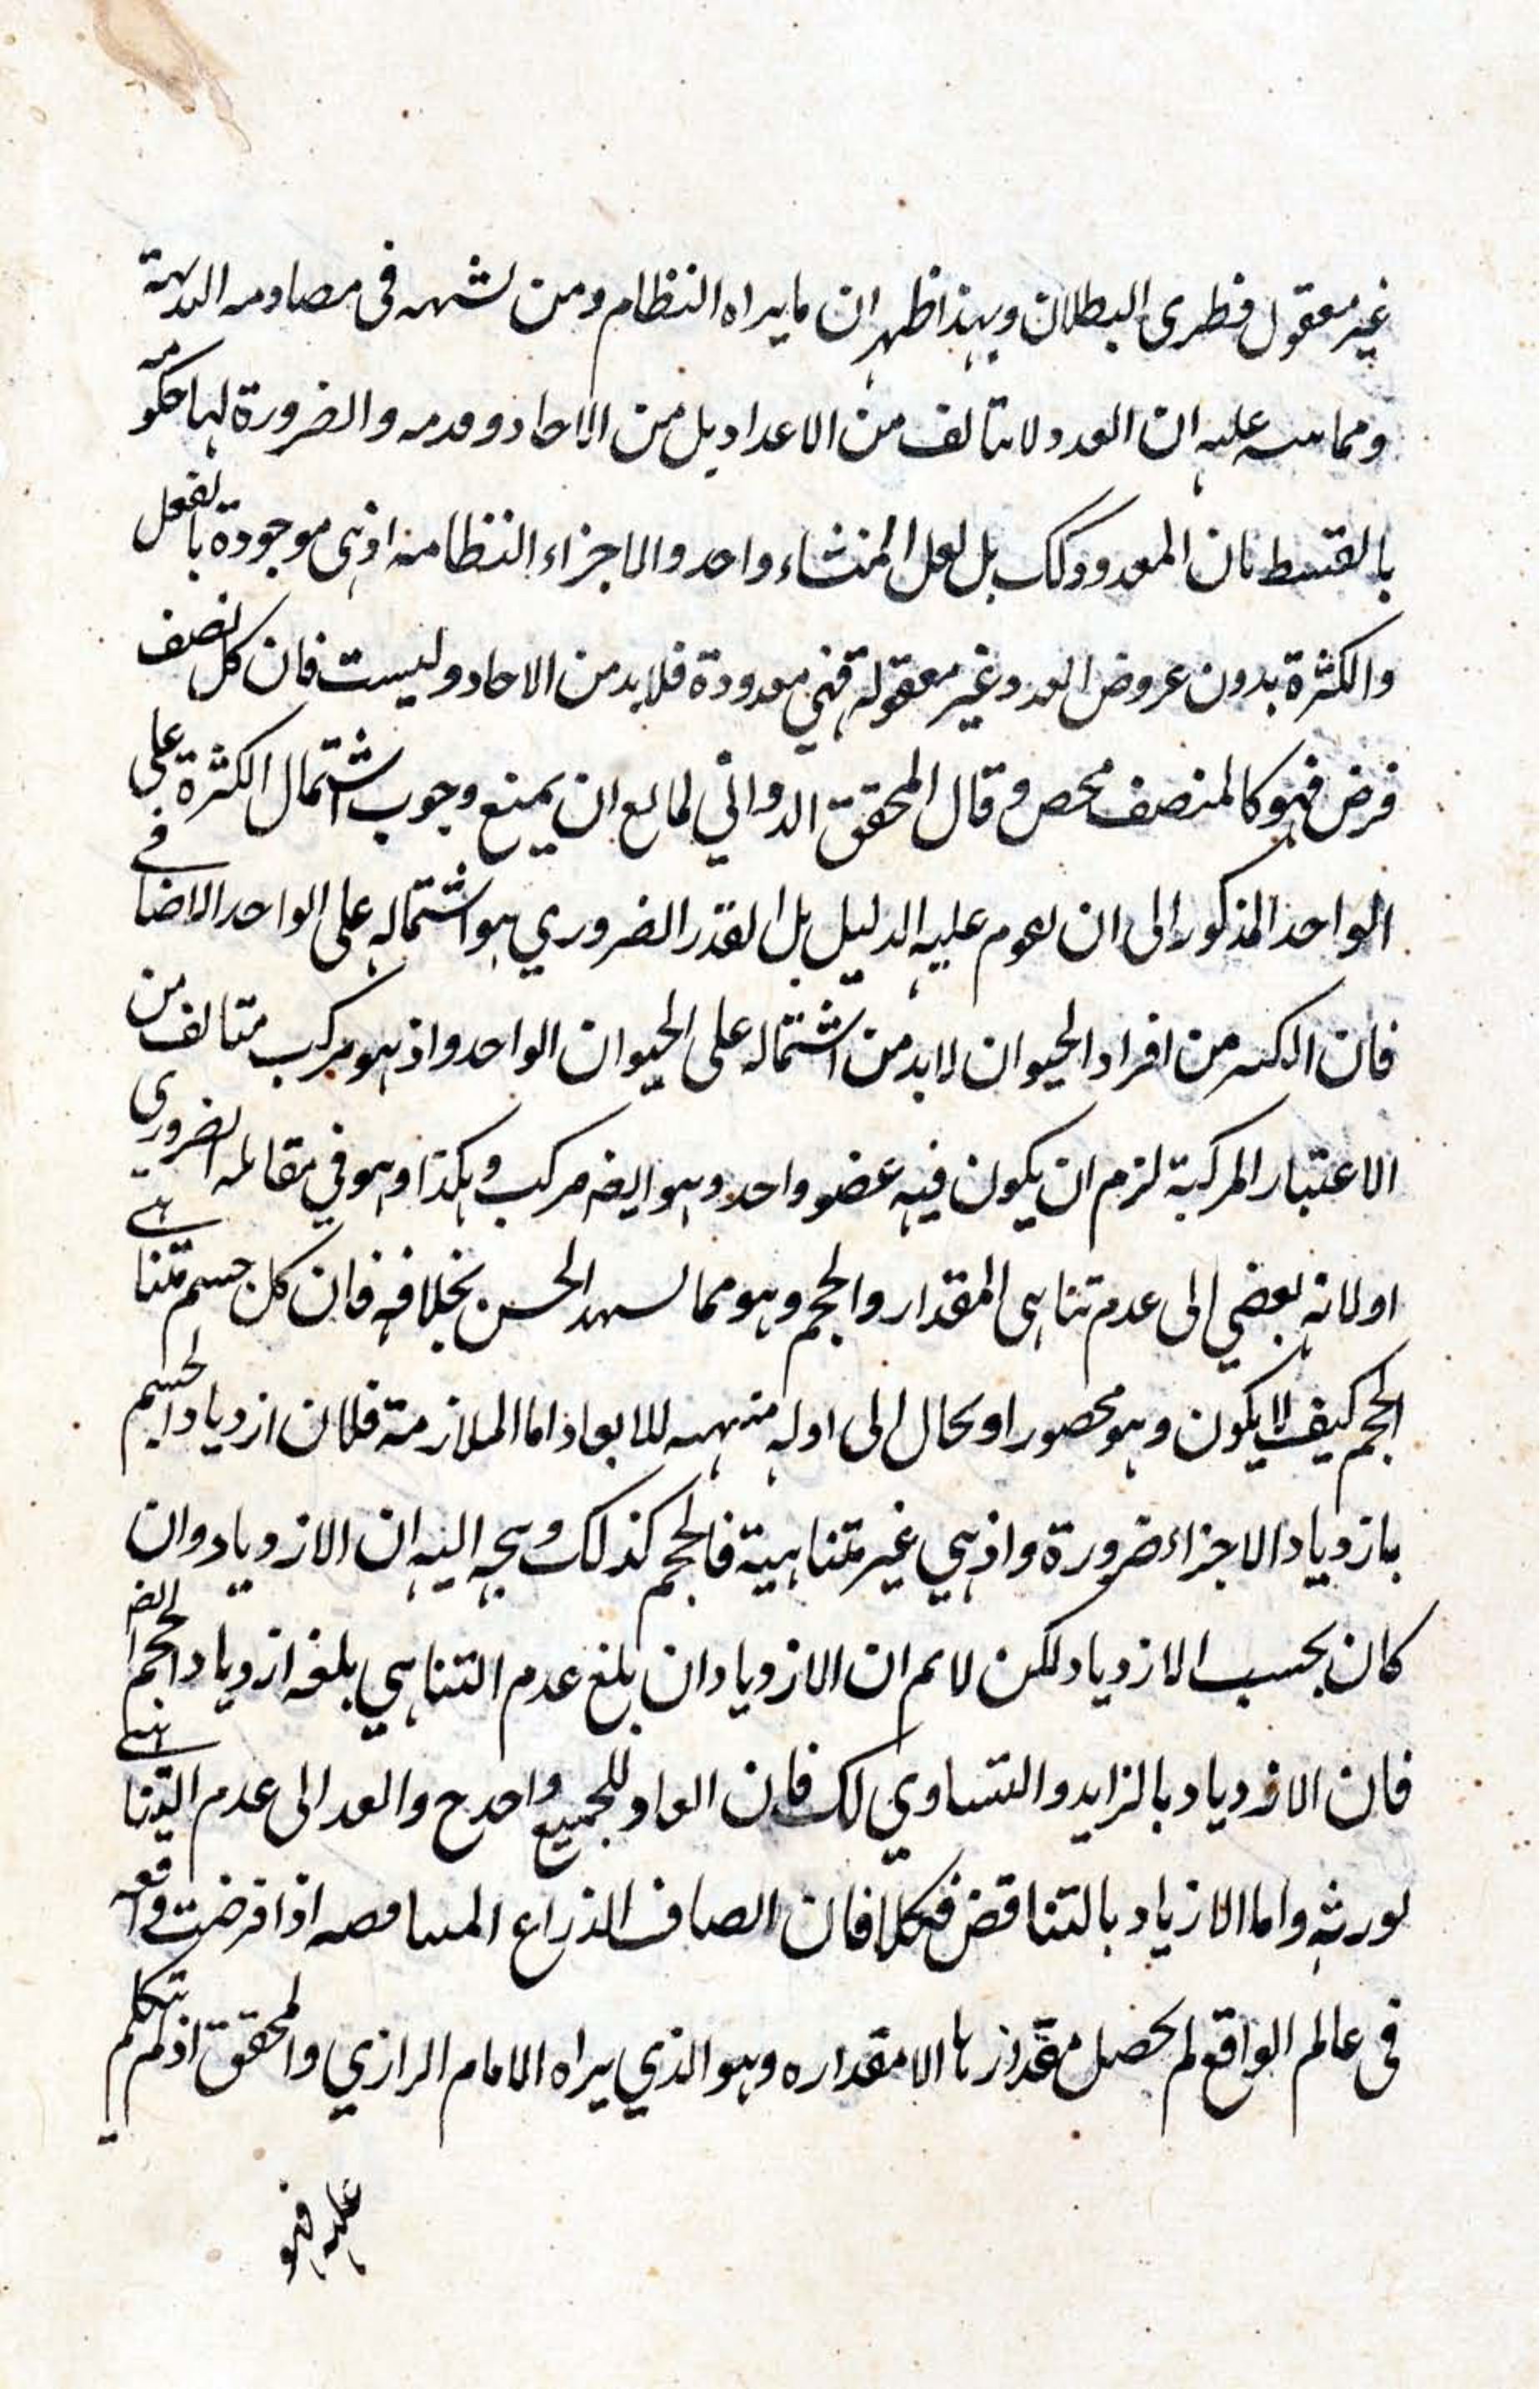 غير معقول فطرى البطلان وبهذا ظهر ان ما يراه النظام ومن لشهه فى مصادمه البدهية
ومما ىىىه عليه ان العدد لا يتالف من الاعداد بل من الاحاد ومدمه والضرورة لها حكومه
بالقسط ىان المعدود كك بل لعل المنشاء واحد والاجزاء النظاميه اذ هى موجودة بالفعل
والكثرة بدون عروض العدد غير معقولة فهي معدودة فلابد من الاحاد وليست فان كل نصف
فرض فهو كالمنصف محص وقال المحقق الدواني لمانع ان يمنع وجوب اشتمال الكثرة على
الواحد المذكور الى ان يقوم عليه الدليل بل القدر الضروري هو اشتماله على الواحد الاضافي
فان الكسر من افراد الحيوان لابد من اشتماله على الحيوان الواحد واذ هو مركب متالف من
الاعتبار المركبة لزم ان يكون فيه عضو واحد وهو ايضه مركب وهكذا وهو في مقابله الضروري
اولانه يفضي الى عدم تناهى المقدار والحجم وهو مما يشهد الحس بخلافه فان كل جسم متناهى
الحجم كيف لا يكون وهو محصور او محال الى اوله منهيه للابعاد اما الملازمة فلان ازدياد الجسم
بازدياد الاجزاء ضرورة واذ هي غير متناهية فالحجم كذلك ويتجه اليه ان الازدياد وان
كان بحسب الازدياد لكن لا نم ان الازدياد ان بلغ عدم التناهي بلغه ازدياد الحجم ايضه
فان الازدياد بالزايد والتساوي لك فان العاد للجميع واحد ح والعد الى عدم التناهى
يورثه واما الازياد بالتناقض فكلا فان انصاف الذراع المتناقصه اذا فرضت واقعه
فى عالم الواقع لم يحصل مقدار ها الا مقداره وهو الذي يراه الامام الرازي والمحقق اذ لم يتكلم
عليه فهو